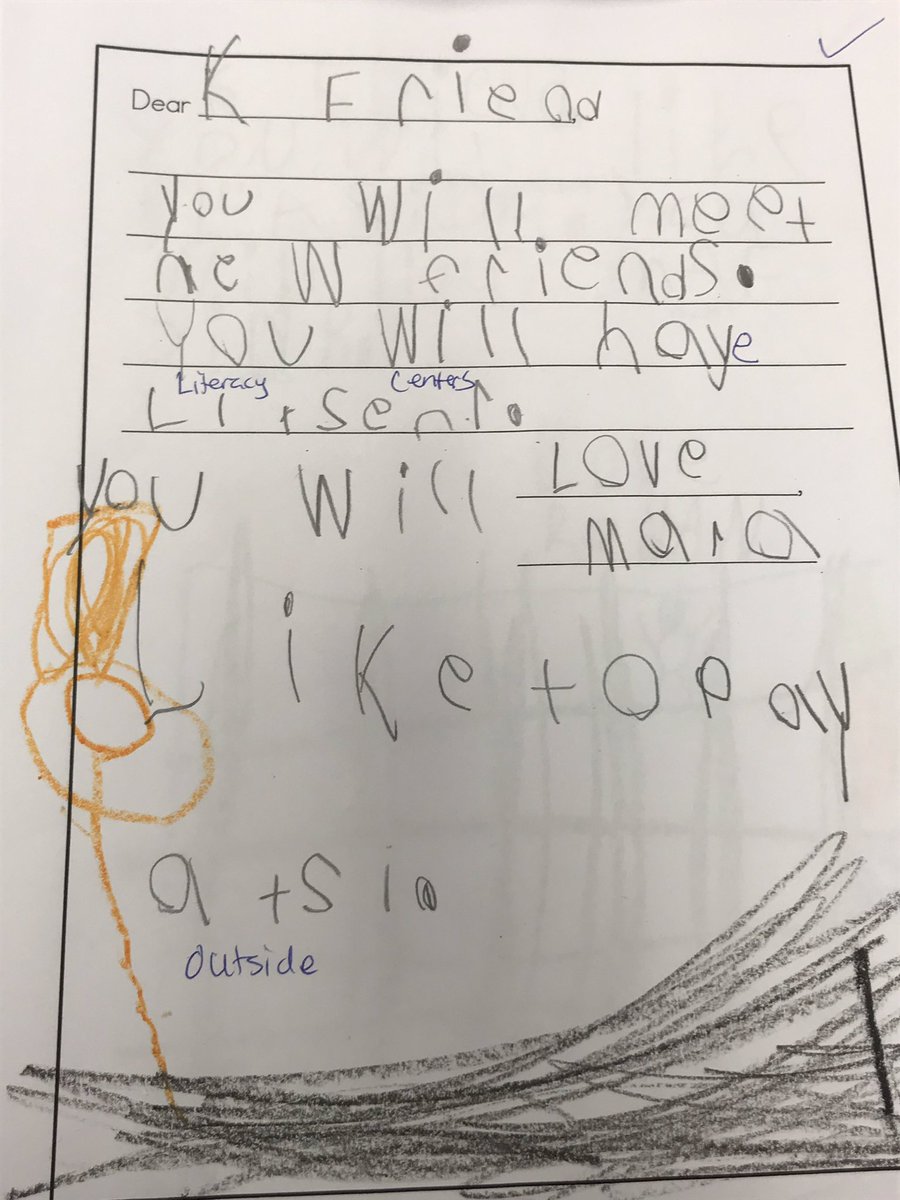 Dear K Friend
you will meet
new friends.
you will have
Literacy Centers
Litsent.
you will
Love
maia
Like to pay
atsi.
outside